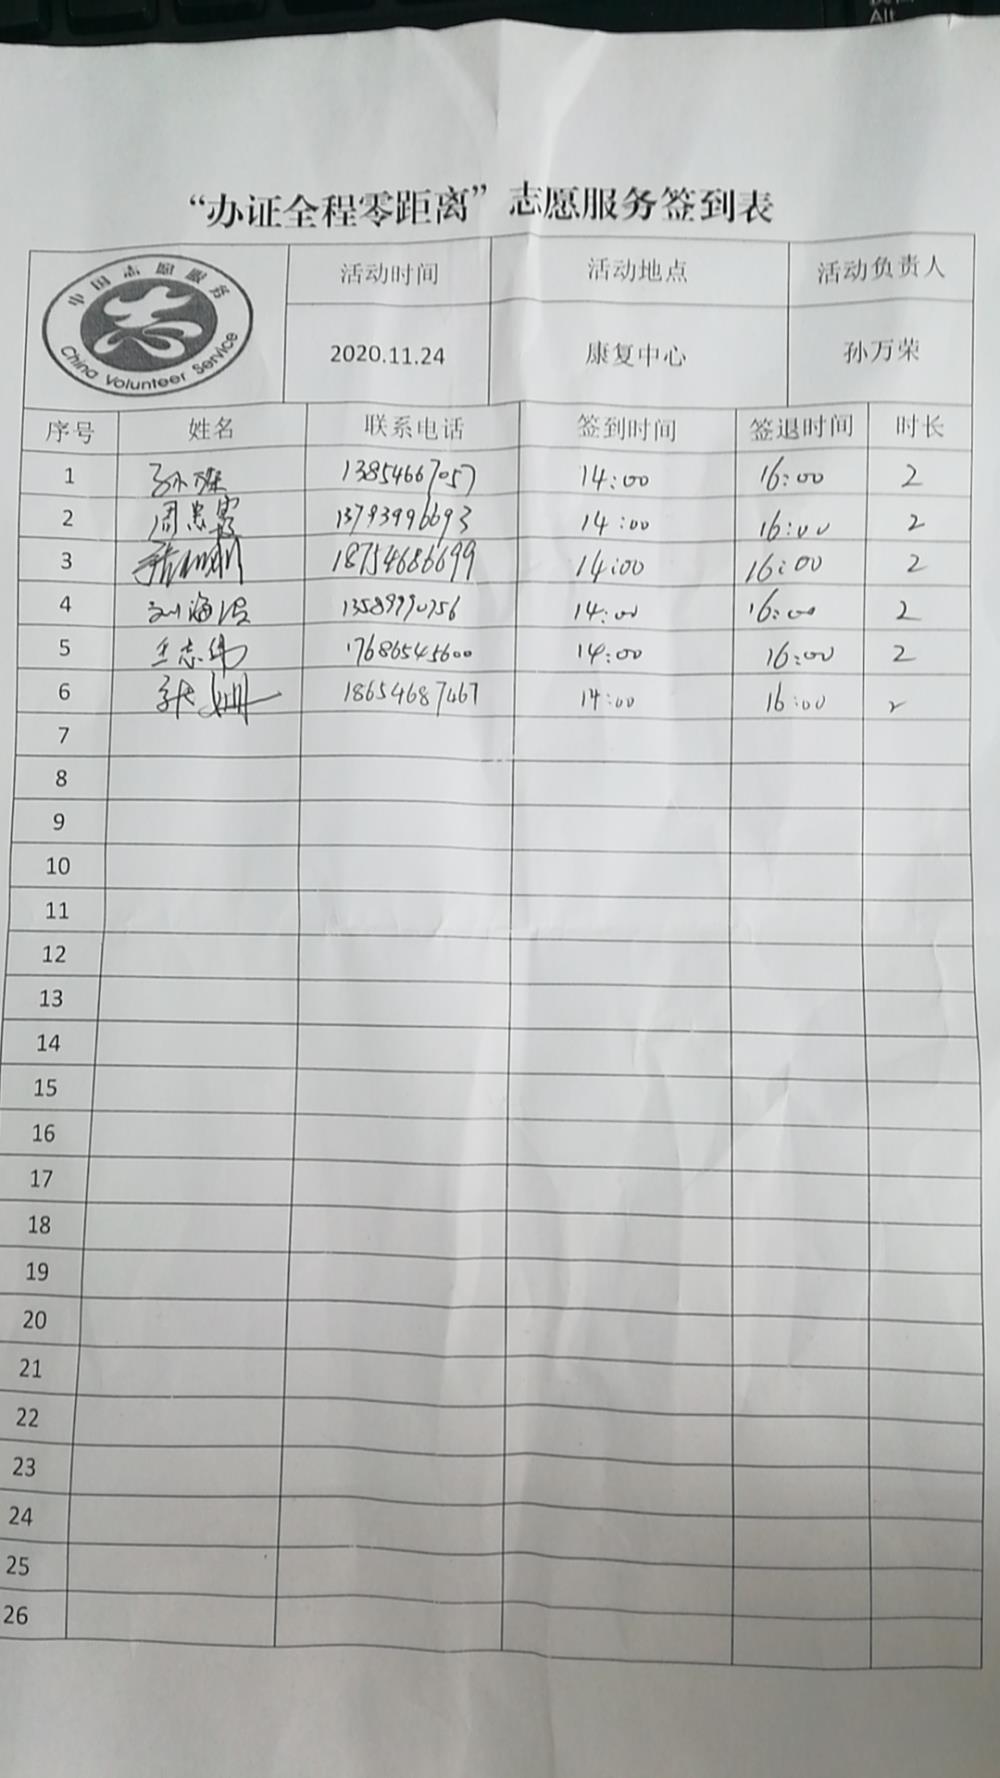 Alt
“办证全程零距离”志愿服务签到表
中国志愿服务
China Volunteer Service
活动时间 活动地点 活动负责人
2020.11.24 康复中心 孙万荣
序号 姓名 联系电话 签到时间 签退时间 时长
1 孙万荣 13854667057 14:00 16:00 2
2 周 13793996693 14:00 16:00 2
3 张 18754686699 14:00 16:00 2
4 刘海 14:00 16:00 2
5 王志伟 17686545600 14:00 16:00 2
6 张 18654687467 14:00 16:00 2
7
8
9
10
11
12
13
14
15
16
17
18
19
20
21
22
23
24
25
26